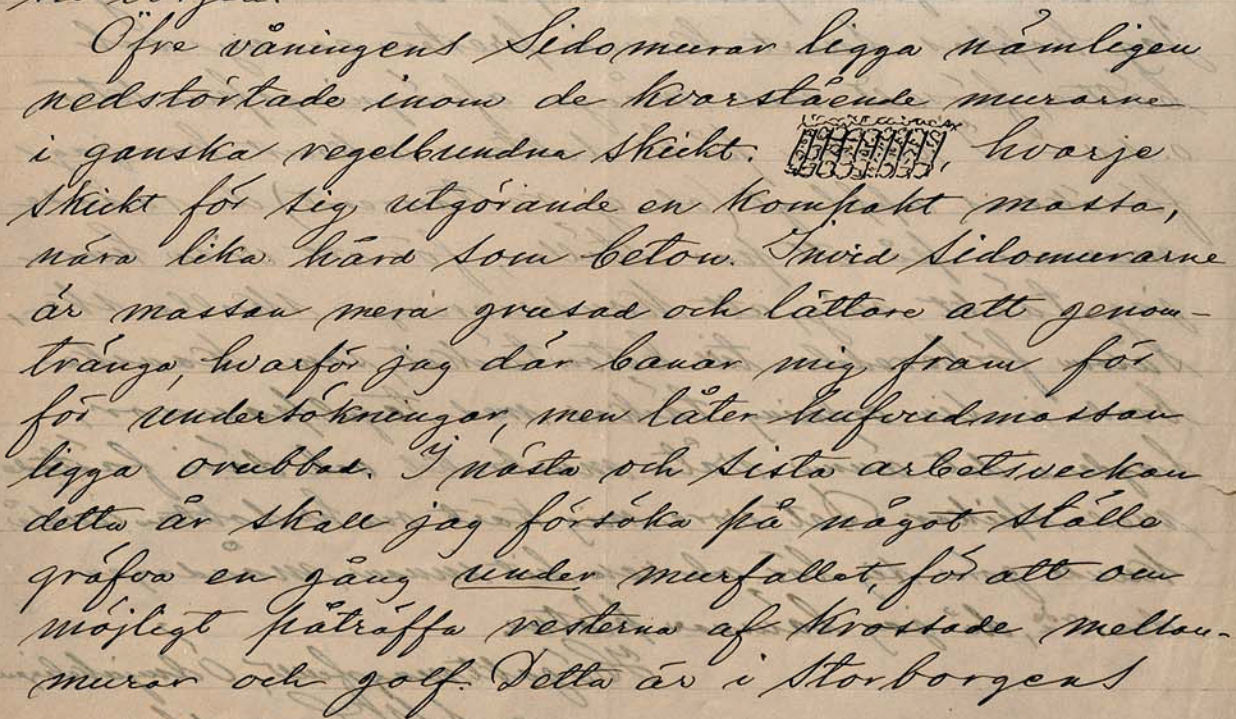 Öfre våningens Sidomurar ligga nämligen
nedstörtade inom de kvarstående murarne
i ganska regelbundna skickt. , hvarje
skickt för sig utgörande en kompakt massa,
nära lika hård som beton. Invid Sidomurarne
är massan mera grusad och lättare att genom-
tränga, hvarför jag där banar mig fram för
för undersökningar, men låter hufvudmassan
ligga orubbad. I nästa och sista arbetsveckan
detta år skall jag försöka på något ställe
gräfva en gång under murfallet, för att om
möjligt påträffa resterna af krossade mellan-
murar och golf. Detta är i Storborgens